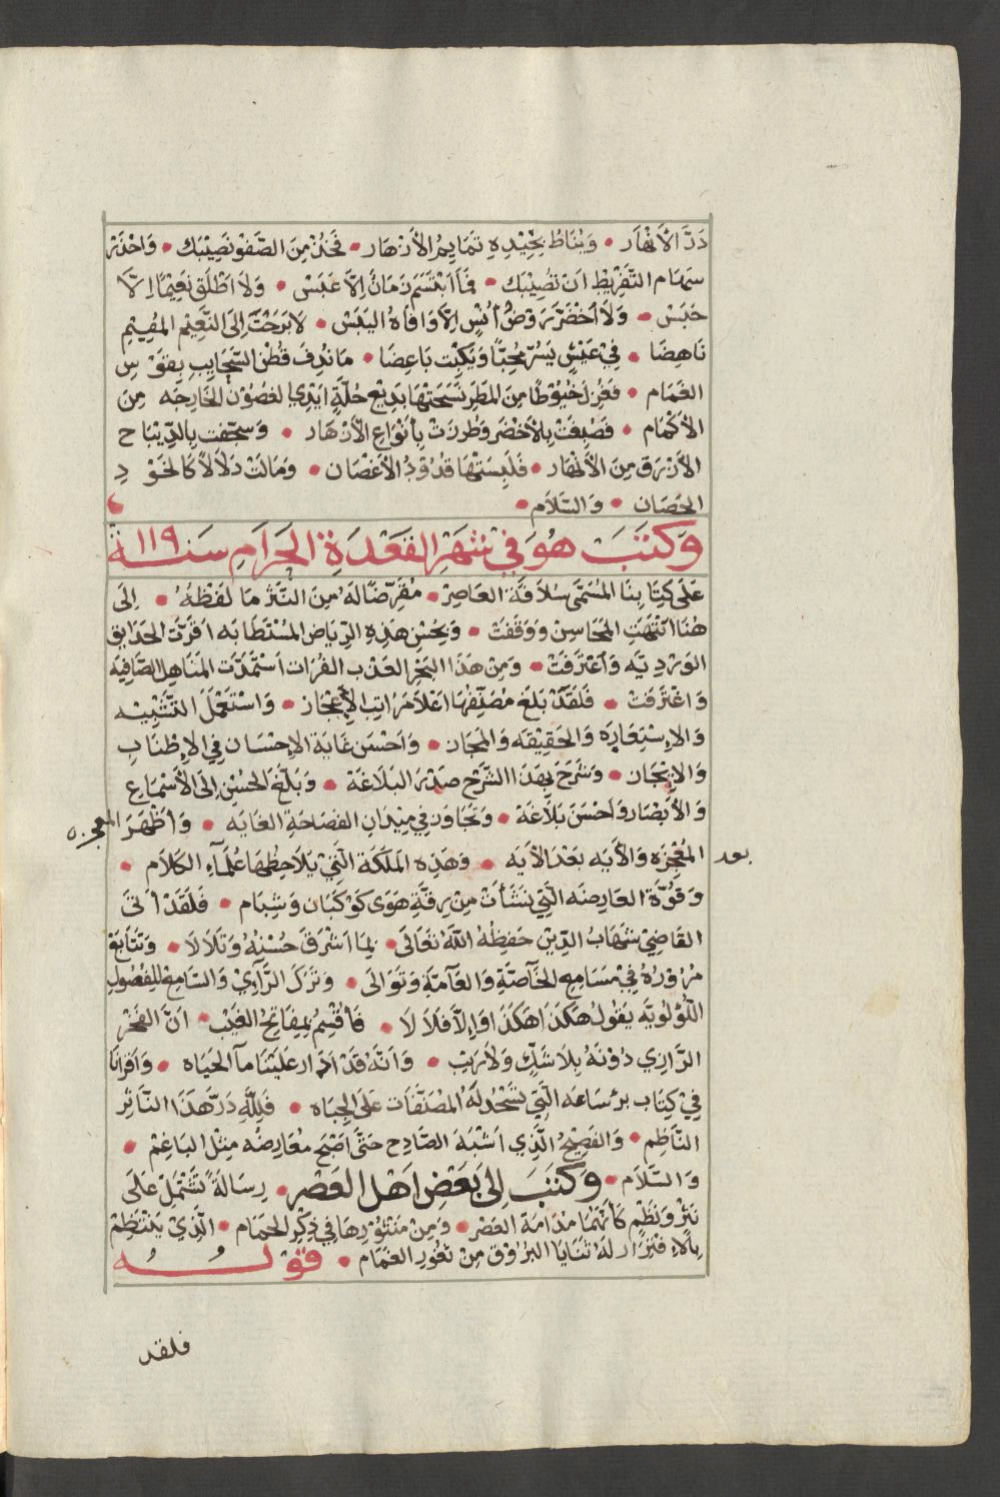 دَرَّ الْأَنْهَار • وَيُنَاطُ بِجِيْدِهِ تَمَايِمُ الْأَزْهَار • فَخُذْ مِنَ الصَّفْوِ نَصِيْبَكَ • وَاحْذَرْ
سِهَام التَّفْرِيْطِ انْ تُصِيْبَكَ • فَمَا ابْتَسَمَ زَمَانٌ اِلَّا عَبَسَ • وَلَا اطْلَقَ نَعِيْمًا اِلَّا
حَبَسَ • وَلَا اخْضَرَّ رَوْضُ اُنْسٍ اِلَّا وَافَاهُ اليَبَسْ • لَا بَرَحْتَ اِلَى النَّعِيْمِ المُقِيْمِ
نَاهِضَا • فِيْ عَيْشٍ يَسُرُّ مُحِبًّا وَيَكْبِتُ بَاغِضَا • مَا نُدِفَ قُطْنُ السَّحَايِبِ بِقَوْسِ
الغَمَام • فَغَزَلَ خُيُوْطًا مِنَ المَطَرِ نَسَجَتْهَا بَدِيْعَ حُلَّةٍ ايْدِي الغُصُوْن الخَارِجَه مِنَ
الأَكْمَام • فَصُبِغَتْ بِالأَخْضَر وَطُرِزَتْ بِأَنْوَاعِ الأَزْهَار • وَسُجِّفت بِالدِّيْبَاح
الأَزْرَق مِنَ الأَنْهَار • فَلَبِسَتْهَا قُدُوْدُ الأَغْصَان • وَمَالَتْ دَلَالًا كَالخَوْدِ
الحَصَان • وَالسَّلَام •
وَكَتَبَ هُوَ فِيْ شَهْرِ القَعْدَةِ الحَرَامِ سَنة ١١٩
عَلَى كِتَابِنَا المُسَمَّى سُلَافَة العَاصِرْ • مُقَرِّضًا لَهُ مِنَ النَّثْرِ مَا لَفظُهُ • اِلَى
هُنَا انْتَهَتِ المَحَاسِنْ وَوَقَفَتْ • وَبِحُسْنِ هَذِهِ الرِّيَاضِ المُسْتَطَابَه اقَرَّتْ الحَدَايق
الوَرْدِيَّه وَاعْتَرَفَتْ • وَمِنْ هَذَا البَحْرِ العَذْب الفُرَات اسْتَمَدَّت المَنَاهِل الصَّافِيَه
وَاغْتَرَفَتْ • فَلَقَدْ بَلَغَ مُصَنِّفُهَا اعْلَا مَرَاتِب الإِعْجَاز • وَاسْتَعْمَلَ التَّشْبِيْه
وَالاِسْتِعَارَه وَالحَقِيْقَه وَالمَجَاز • وَاحْسَن غَايَة الاِحْسَان فِي الاِطْنَابِ
وَالاِيْجَاز • وَشَرَحَ بِهَذَا الشَّرْحِ صَدْرَ البَلَاغَة • وَبَلَّغَ الحُسْن اِلَى الأَسْمَاعِ
وَالأَبْصَار وَاحْسَنَ بَلَاغَة • وَتَجَاوَز فِي مِيْدَانِ الفَصَاحَةِ الغَايَه • وَأظْهَرَ المعجزه
المُعْجِزَه وَالأَيَه بَعْدَ الأَيَه • وَهَذِهِ المَلَكَة الَّتِيْ يُلَاحِظُهَا عُلَمَآءِ الكَلَام •
بعد
وَقُوَّةُ العَارِضَه الَّتِي نَشَأَتْ مِنْ رِقَّةِ هَوَى كَوْكَبَان وَشِبَام • فَلَقَدْ أتَى
القَاضِيْ شِهَابُ الدِّيْن حَفِظَهُ اللَّهُ تَعَالَى • بِمَا اشْرَقَ حُسْنُهُ وَتَلَالَا • وَتَتَابَعَ
مُرُوْرُهُ فِيْ مَسَامِعِ الخَآصَّةِ وَالعَآمَّةِ وَتَوَالَى • وَتَرَكَ الرَّاوِيْ وَالسَّامِعْ لِلفُصُولِ
اللُّؤْلُوِيَّه يَقُوْلُ هَكَذَا هَكَذَا وَاِلَّا فَلَا لَا • فَأُقْسِمُ بِمِفَاتِحْ الغَيْبْ • انَّ الفَخْرَ
الرَّازِي دُوْنَهُ بِلَا شَكٍّ وَلَا رَيْب • وَانَّهُ قَدْ ادَار عَلَيْنَا مآ الحَيَاه • وَاقْرَانَا
فِيْ كِتَاب بَرَاعَه الَّتِي تَسْجُدُ لَهُ المُصَنَّفَات عَلَى الجِبَاه • فَلِلَّهِ دَرَّ هَذَا النَّاثِر
النَّاظِم • وَالفَصِيْحُ الَّذِي اشْبَهَ الصَّادِح حَتَّى اصْبَحَ مُعَارِضُه مِثْلَ البَاغِمْ •
وَالسَّلَام • وَكَتَبَ اِلَى بَعْضِ اهْلِ العَصْرِ • رِسَالَةً تَشْتَمِلْ عَلَى
نَثْرٍ وَنَظْمٍ كَأَنَّهُمَا مُدَامَة العَصْر • وَمِنْ مَنْثُوْرِهَا فِيْ ذِكْرِ الحَمَام • الَّذِيْ يَنْتَظِمْ
بِالاِفْتِرَار لَهُ ثَنَايَا البُرُوْق مِنْ ثُغُوْرِ الغَمَام • قَوْلُهُ
فلقد